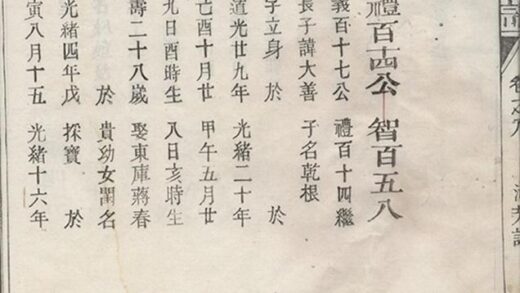 卷之八
禮百十四公
義百十七公
長子諱大善
字立身 於
道光廿九年
己酉十月廿
九日酉時生
壽二十八歲
於
光緒四年戊
寅八月十五
智百五八
禮百十四繼
子名乾根
於
光緒二十年
甲午五月廿
八日亥時生
娶東庫蔣春
貴功女閨名
採寶 於
光緒十六年